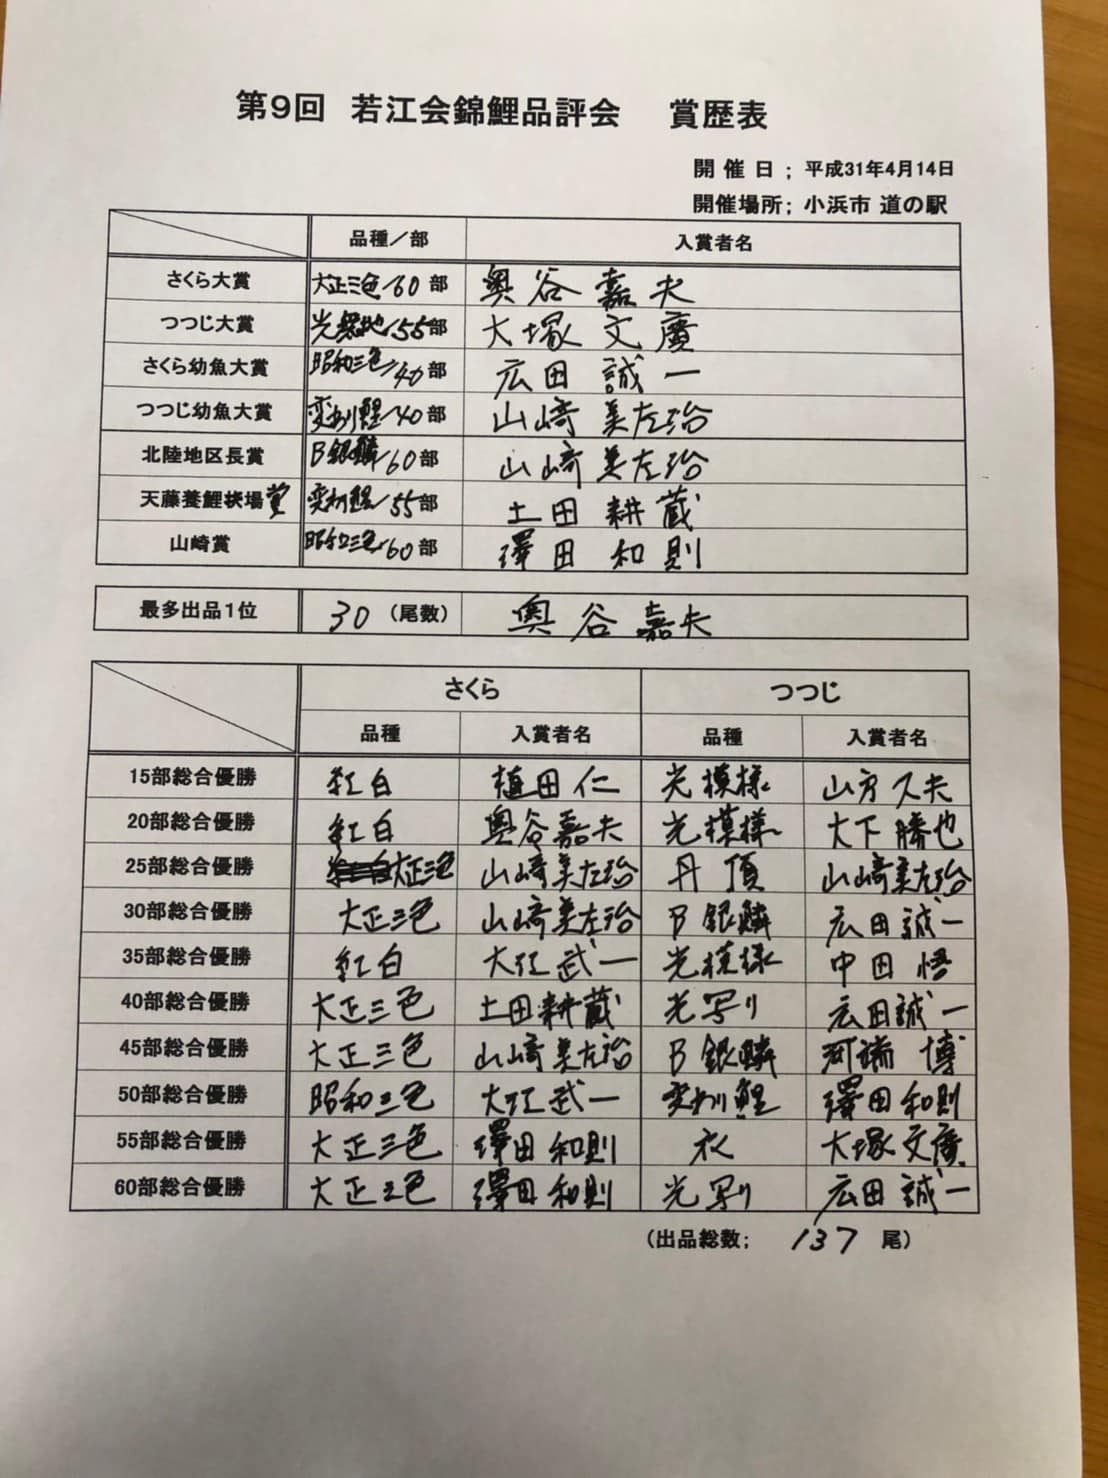 第9回 若江会錦鯉品評会 賞歴表
開催日; 平成31年4月14日
開催場所; 小浜市 道の駅
品種/部 入賞者名
さくら大賞 大正三色/60部 奥谷 嘉夫
つつじ大賞 光無地/55部 大塚 文廣
さくら幼魚大賞 昭和三色/40部 広田 誠一
つつじ幼魚大賞 変わり鯉/40部 山崎 美左治
北陸地区長賞 B銀鱗/60部 山崎 美左治
天藤養鯉場賞 変わり鯉/55部 土田 耕蔵
山崎賞 昭和三色/60部 澤田 和則
最多出品1位 30 (尾数) 奥谷 嘉夫
さくら つつじ
品種 入賞者名 品種 入賞者名
15部総合優勝 紅白 植田仁 光模様 山方久夫
20部総合優勝 紅白 奥谷嘉夫 光模様 大下勝也
25部総合優勝 大正三色 山崎美左治 丹頂 山崎美左治
30部総合優勝 大正三色 山崎美左治 B銀鱗 広田誠一
35部総合優勝 紅白 大江武一 光模様 中田悟
40部総合優勝 大正三色 土田耕蔵 光写り 広田誠一
45部総合優勝 大正三色 山崎美左治 B銀鱗 河端 博
50部総合優勝 昭和三色 大江武一 変わり鯉 澤田和則
55部総合優勝 大正三色 澤田和則 衣 大塚文廣
60部総合優勝 大正三色 澤田和則 光写り 広田誠一
(出品総数; 137 尾)